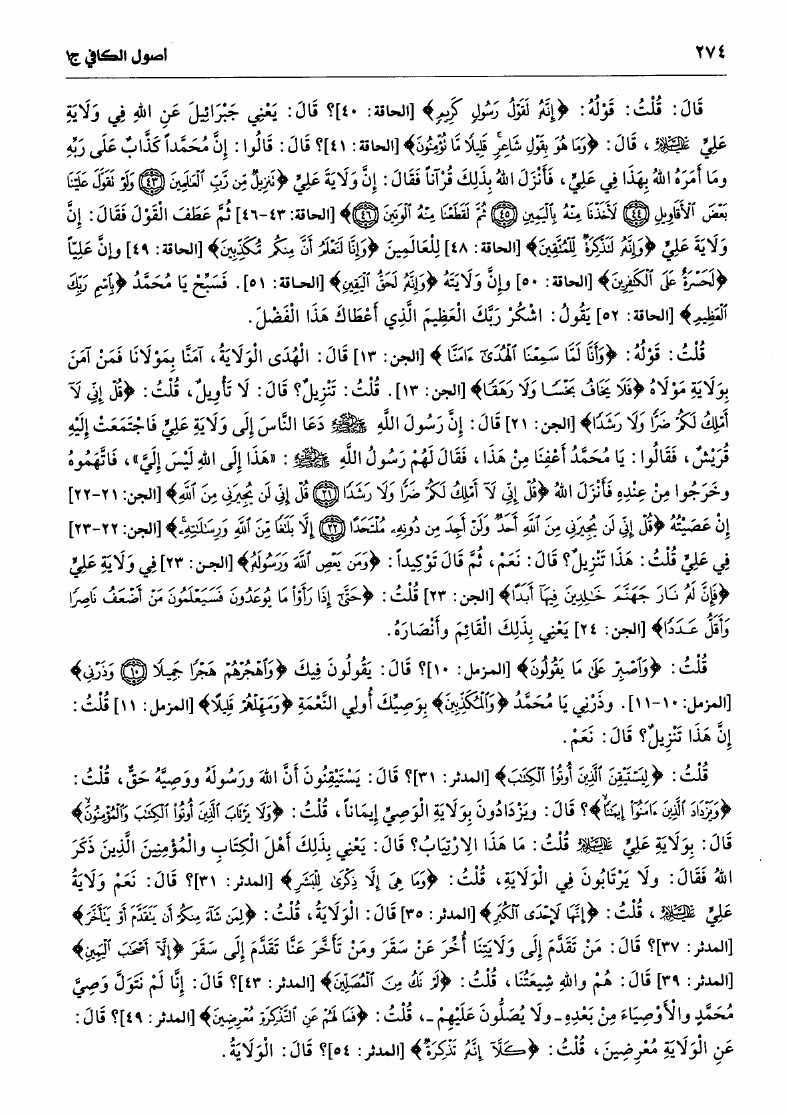 ٢٧٤
أصول الكافي ج١
قَالَ: قُلْتُ: قَوْلُهُ: ﴿إِنَّهُ لَقَوْلُ رَسُولٍ كَرِيمٍ﴾ [الحاقة: ٤٠]؟ قَالَ: يَعْنِي جَبْرَائِيلَ عَنِ اللهِ فِي وَلَايَةِ
عَلِيٍّ عَلَيْهِ السَّلَامُ، قَالَ: ﴿وَمَا هُوَ بِقَوْلِ شَاعِرٍ قَلِيلًا مَّا تُؤْمِنُونَ﴾ [الحاقة: ٤١]؟ قَالَ: قَالُوا: إِنَّ مُحَمَّداً كَذَّابٌ عَلَى رَبِّهِ
ومَا أَمَرَهُ اللهُ بِهَذَا فِي عَلِيٍّ، فَأَنْزَلَ اللهُ بِذَلِكَ قُرْآناً فَقَالَ: إِنَّ وَلَايَةَ عَلِيٍّ ﴿تَنزِيلٌ مِّن رَّبِّ الْعَالَمِينَ (٤٣) وَلَوْ تَقَوَّلَ عَلَيْنَا
بَعْضَ الْأَقَاوِيلِ (٤٤) لَأَخَذْنَا مِنْهُ بِالْيَمِينِ (٤٥) ثُمَّ لَقَطَعْنَا مِنْهُ الْوَتِينَ (٤٦)﴾ [الحاقة: ٤٣-٤٦] ثُمَّ عَطَفَ الْقَوْلَ فَقَالَ: إِنَّ
وَلَايَةَ عَلِيٍّ ﴿وَإِنَّهُ لَتَذْكِرَةٌ لِّلْمُتَّقِينَ﴾ [الحاقة: ٤٨] لِلْعَالَمِينَ ﴿وَإِنَّا لَنَعْلَمُ أَنَّ مِنكُم مُّكَذِّبِينَ﴾ [الحاقة: ٤٩] وإِنَّ عَلِيّاً
﴿لَحَسْرَةٌ عَلَى الْكَافِرِينَ﴾ [الحاقة: ٥٠] وإِنَّ وَلَايَتَهُ ﴿وَإِنَّهُ لَحَقُّ الْيَقِينِ﴾ [الحاقة: ٥١]. فَسَبِّحْ يَا مُحَمَّدُ ﴿بِاسْمِ رَبِّكَ
الْعَظِيمِ﴾ [الحاقة: ٥٢] يَقُولُ: اشْكُرْ رَبَّكَ الْعَظِيمَ الَّذِي أَعْطَاكَ هَذَا الْفَضْلَ.
قُلْتُ: قَوْلُهُ: ﴿وَأَنَّا لَمَّا سَمِعْنَا الْهُدَى آمَنَّا﴾ [الجن: ١٣] قَالَ: الْهُدَى الْوَلَايَةُ، آمَنَّا بِمَوْلَانَا فَمَنْ آمَنَ
بِوَلَايَةِ مَوْلَاهُ ﴿فَلَا يَخَافُ بَخْسًا وَلَا رَهَقًا﴾ [الجن: ١٣]. قُلْتُ: تَنْزِيلٌ؟ قَالَ: لَا تَأْوِيلٌ، قُلْتُ: ﴿قُلْ إِنِّي لَا
أَمْلِكُ لَكُمْ ضَرًّا وَلَا رَشَدًا﴾ [الجن: ٢١] قَالَ: إِنَّ رَسُولَ اللهِ ﷺ دَعَا النَّاسَ إِلَى وَلَايَةِ عَلِيٍّ فَاجْتَمَعَتْ إِلَيْهِ
قُرَيْشٌ، فَقَالُوا: يَا مُحَمَّدُ أَعْفِنَا مِنْ هَذَا، فَقَالَ لَهُمْ رَسُولُ اللهِ ﷺ: «هَذَا إِلَى اللهِ لَيْسَ إِلَيَّ»، فَاتَّهَمُوهُ
وخَرَجُوا مِنْ عِنْدِهِ فَأَنْزَلَ اللهُ ﴿قُلْ إِنِّي لَا أَمْلِكُ لَكُمْ ضَرًّا وَلَا رَشَدًا (٢١) قُلْ إِنِّي لَن يُجِيرَنِي مِنَ اللهِ﴾ [الجن: ٢١-٢٢]
إِنْ عَصَيْتُهُ ﴿قُلْ إِنِّي لَن يُجِيرَنِي مِنَ اللهِ أَحَدٌ وَلَنْ أَجِدَ مِن دُونِهِ مُلْتَحَدًا (٢٢) إِلَّا بَلَاغًا مِّنَ اللهِ وَرِسَالَاتِهِ﴾ [الجن: ٢٢-٢٣]
فِي عَلِيٍّ قُلْتُ: هَذَا تَنْزِيلٌ؟ قَالَ: نَعَمْ، ثُمَّ قَالَ تَوْكِيداً: ﴿وَمَن يَعْصِ اللهَ وَرَسُولَهُ﴾ [الجن: ٢٣] فِي وَلَايَةِ عَلِيٍّ
﴿فَإِنَّ لَهُ نَارَ جَهَنَّمَ خَالِدِينَ فِيهَا أَبَدًا﴾ [الجن: ٢٣] قُلْتُ: ﴿حَتَّى إِذَا رَأَوْا مَا يُوعَدُونَ فَسَيَعْلَمُونَ مَنْ أَضْعَفُ نَاصِرًا
وَأَقَلُّ عَدَدًا﴾ [الجن: ٢٤] يَعْنِي بِذَلِكَ الْقَائِمَ وأَنْصَارَهُ.
قُلْتُ: ﴿وَاصْبِرْ عَلَى مَا يَقُولُونَ﴾ [المزمل: ١٠]؟ قَالَ: يَقُولُونَ فِيكَ ﴿وَاهْجُرْهُمْ هَجْرًا جَمِيلًا (١٠) وَذَرْنِي﴾
[المزمل: ١٠-١١]. وذَرْنِي يَا مُحَمَّدُ ﴿وَالْمُكَذِّبِينَ﴾ بِوَصِيِّكَ أُولِي النَّعْمَةِ ﴿وَمَهِّلْهُمْ قَلِيلًا﴾ [المزمل: ١١] قُلْتُ:
إِنَّ هَذَا تَنْزِيلٌ؟ قَالَ: نَعَمْ.
قُلْتُ: ﴿لِيَسْتَيْقِنَ الَّذِينَ أُوتُوا الْكِتَابَ﴾ [المدثر: ٣١]؟ قَالَ: يَسْتَيْقِنُونَ أَنَّ اللهَ ورَسُولَهُ ووَصِيَّهُ حَقٌّ، قُلْتُ:
﴿وَيَزْدَادَ الَّذِينَ آمَنُوا إِيمَانًا﴾؟ قَالَ: ويَزْدَادُونَ بِوَلَايَةِ الْوَصِيِّ إِيمَاناً، قُلْتُ: ﴿وَلَا يَرْتَابَ الَّذِينَ أُوتُوا الْكِتَابَ وَالْمُؤْمِنُونَ﴾
قَالَ: بِوَلَايَةِ عَلِيٍّ عَلَيْهِ السَّلَامُ قُلْتُ: مَا هَذَا الِارْتِيَابُ؟ قَالَ: يَعْنِي بِذَلِكَ أَهْلَ الْكِتَابِ والْمُؤْمِنِينَ الَّذِينَ ذَكَرَ
اللهُ فَقَالَ: ولَا يَرْتَابُونَ فِي الْوَلَايَةِ، قُلْتُ: ﴿وَمَا هِيَ إِلَّا ذِكْرَى لِلْبَشَرِ﴾ [المدثر: ٣١]؟ قَالَ: نَعَمْ وَلَايَةُ
عَلِيٍّ عَلَيْهِ السَّلَامُ، قُلْتُ: ﴿إِنَّهَا لَإِحْدَى الْكُبَرِ﴾ [المدثر: ٣٥] قَالَ: الْوَلَايَةُ، قُلْتُ: ﴿لِمَن شَاءَ مِنكُمْ أَن يَتَقَدَّمَ أَوْ يَتَأَخَّرَ﴾
[المدثر: ٣٧]؟ قَالَ: مَنْ تَقَدَّمَ إِلَى وَلَايَتِنَا أُخِّرَ عَنْ سَقَرَ ومَنْ تَأَخَّرَ عَنَّا تَقَدَّمَ إِلَى سَقَرَ ﴿إِلَّا أَصْحَابَ الْيَمِينِ﴾
[المدثر: ٣٩] قَالَ: هُمْ واللهِ شِيعَتُنَا، قُلْتُ: ﴿لَمْ نَكُ مِنَ الْمُصَلِّينَ﴾ [المدثر: ٤٣]؟ قَالَ: إِنَّا لَمْ نَتَوَلَّ وَصِيَّ
مُحَمَّدٍ والْأَوْصِيَاءَ مِنْ بَعْدِهِ ـ ولَا يُصَلُّونَ عَلَيْهِمْ ـ، قُلْتُ: ﴿فَمَا لَهُمْ عَنِ التَّذْكِرَةِ مُعْرِضِينَ﴾ [المدثر: ٤٩]؟ قَالَ:
عَنِ الْوَلَايَةِ مُعْرِضِينَ، قُلْتُ: ﴿كَلَّا إِنَّهُ تَذْكِرَةٌ﴾ [المدثر: ٥٤]؟ قَالَ: الْوَلَايَةُ.